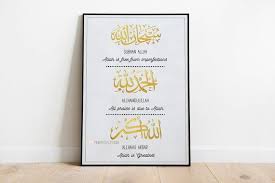 سبحان الله
SUBHAN ALLAH
Allah is free from imperfections
الحمد لله
ALHAMDULILLAH
All praise is due to Allah
الله أكبر
ALLAHU AKBAR
Allah is Greatest